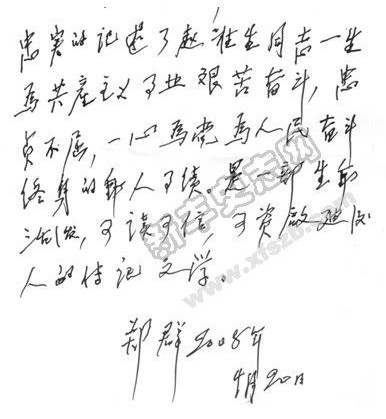 忠实的记述了赵淮生同志一生
为共产主义事业艰苦奋斗,忠
贞不屈,一心为党为人民奋斗
终身的动人事绩。是一部生动
活泼,可读可信,可资启迪后
人的传记文学。
郑群2008年
9月20日
新泰史志网
www.xtszb.com